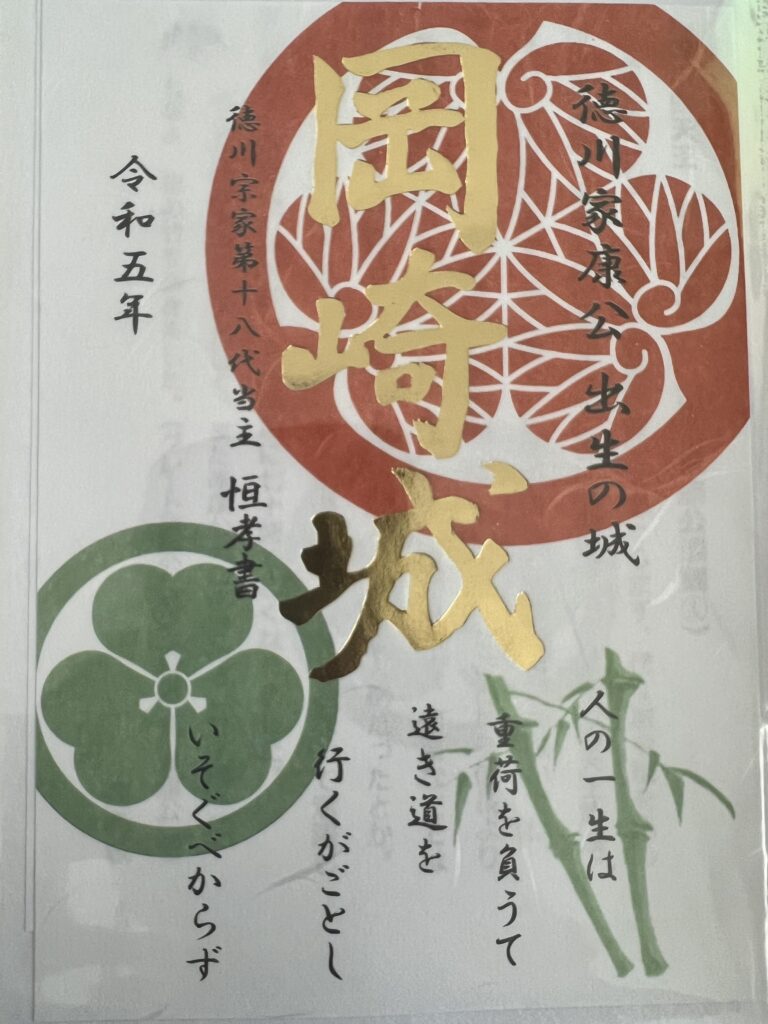 徳川家康公 出生の城
岡崎城
徳川宗家第十八代当主 恒孝書
令和五年
人の一生は
重荷を負うて
遠き道を
行くがごとし
いそぐべからず